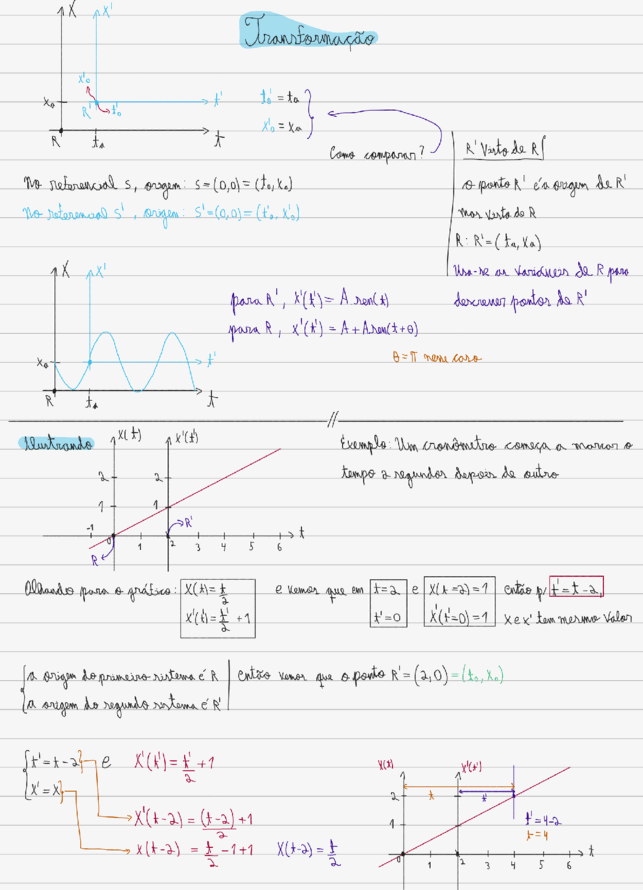 Transformação
X
X'
x'₀
x₀
R'
t'₀
t'
R
tₐ
t
t'₀ = tₐ
x'₀ = xₐ
Como comparar?
R' visto de R
o ponto R' é a origem de R'
mas visto de R
R: R' = (tₐ, xₐ)
Usa-se as variáveis de R para
descrever pontos de R'
No referencial s, origem: s = (0,0) = (t₀, x₀)
No referencial s', origem: s' = (0,0) = (t'₀, x'₀)
X
X'
x₀
t'
R
tₐ
t
para R', X'(t') = A sen(t)
para R, x'(t') = A + A sen(t+θ)
θ = π nesse caso
Ilustrando
X(t)
X'(t')
2
2
1
1
-1
0
1
2
3
4
5
6
t
R
R'
Exemplo: Um cronômetro começa a marcar o
tempo 2 segundos depois de outro
Olhando para o gráfico:
X(t) = t/2
X'(t') = t'/2 + 1
e vemos que em
t = 2
t' = 0
e
X(t=2) = 1
X'(t'=0) = 1
então p/ t' = t - 2,
x e x' tem mesmo valor
a origem do primeiro sistema é R
a origem do segundo sistema é R'
então vemos que o ponto R' = (2,0) = (t₀, x₀)
t' = t - 2
X' = X
e
X'(t') = t'/2 + 1
X'(t-2) = (t-2)/2 + 1
x(t-2) = t/2 - 1 + 1
X(t-2) = t/2
X(t)
X'(t')
2
1
t
t'
t' = 4-2
t = 4
0
1
2
3
4
5
6
t